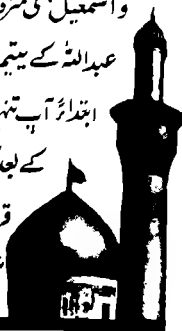 واسمٰعیل کی
عبداللہ کے یتیم
ابتداءً آپ تنہا
کے بعد